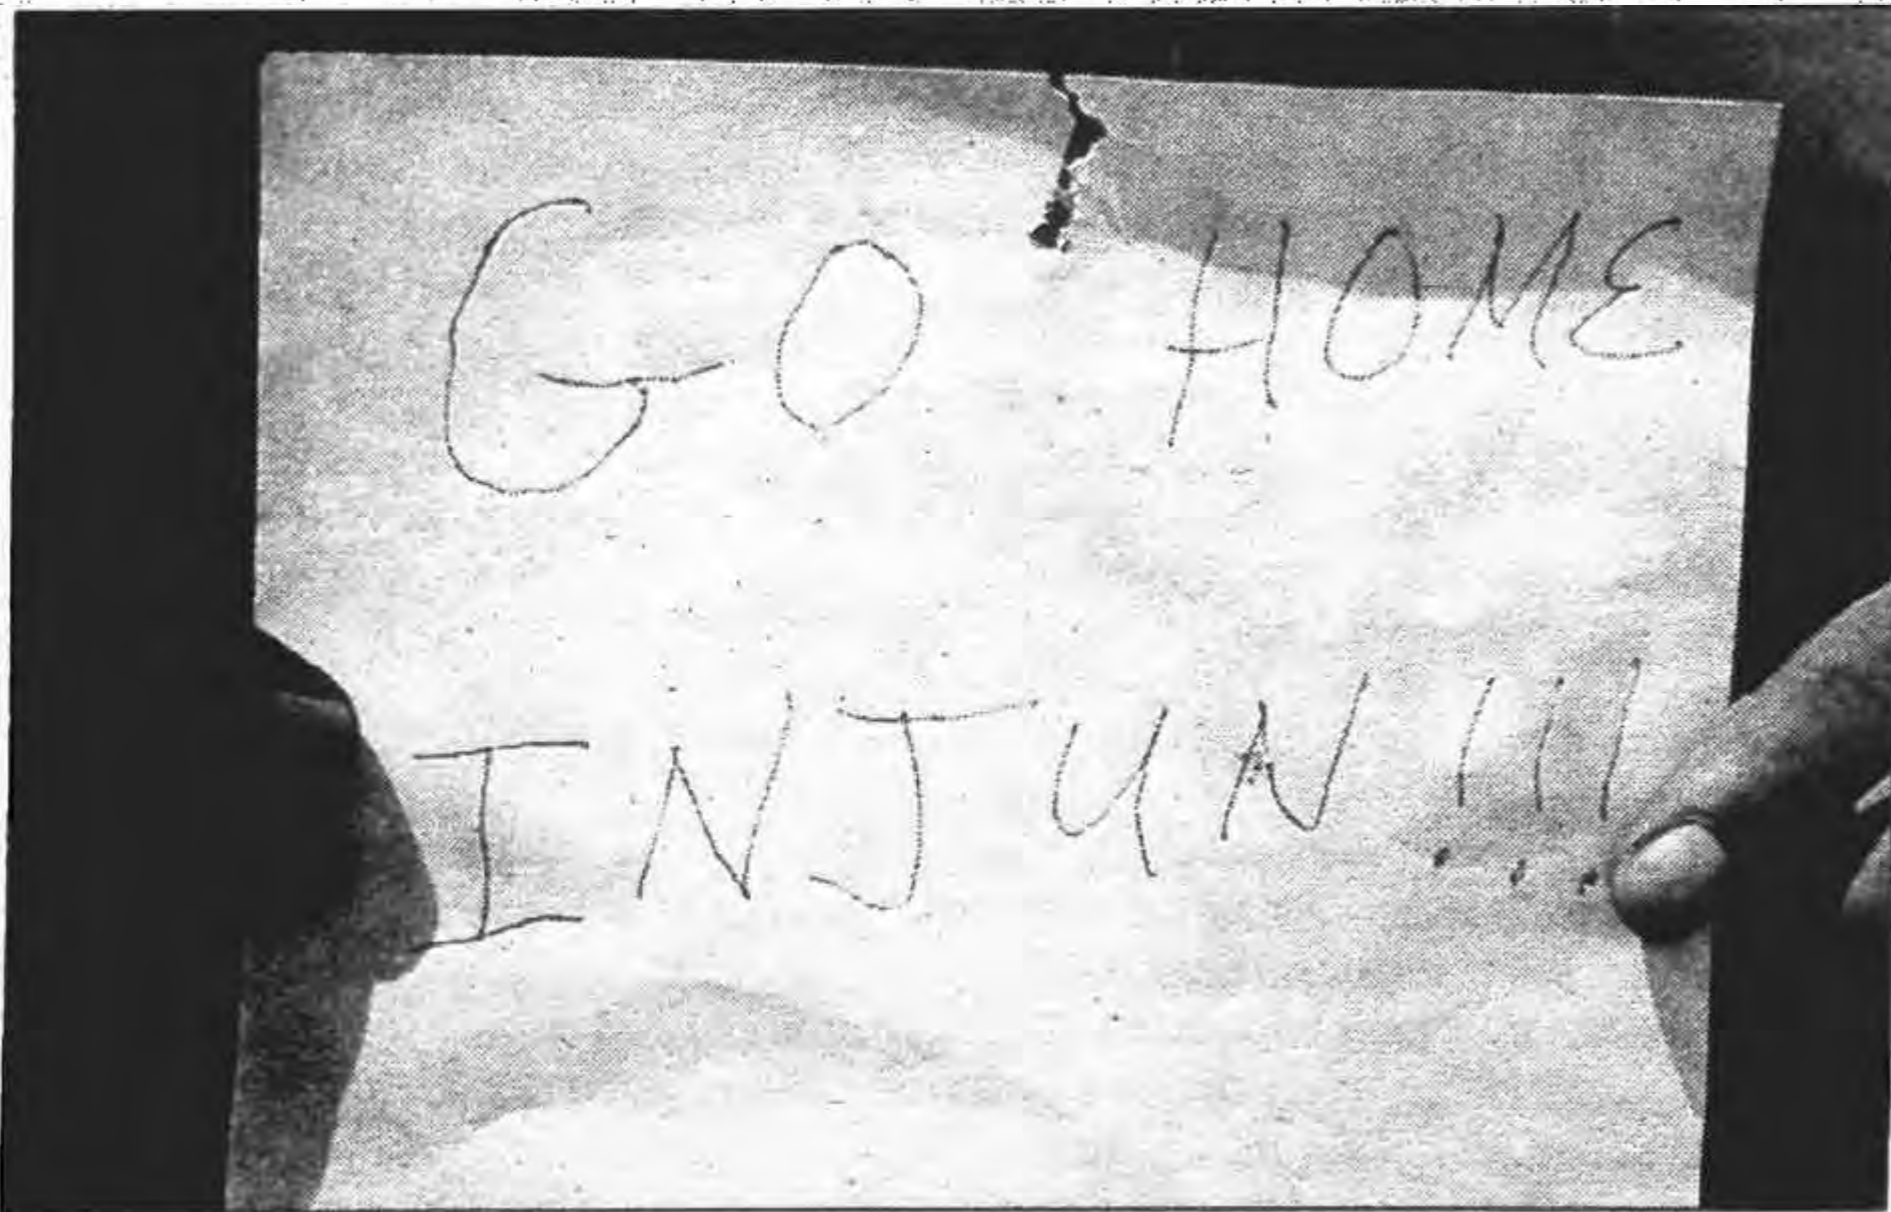 GO HOME
INJUN!!!